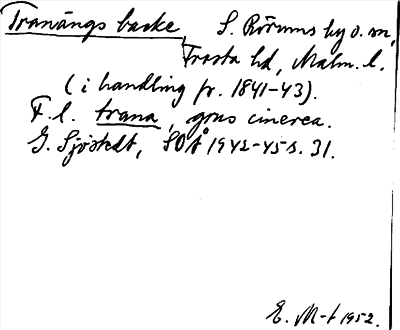 Tranängs backe, S. Rörums by o. sn,
Frosta hd, Malm. l.
(i handling fr. 1841-43).
F. l. trana, grus cinerea.
G. Sjöstedt, SOÅ 1942-45 s. 31.
E. M-t 1952.